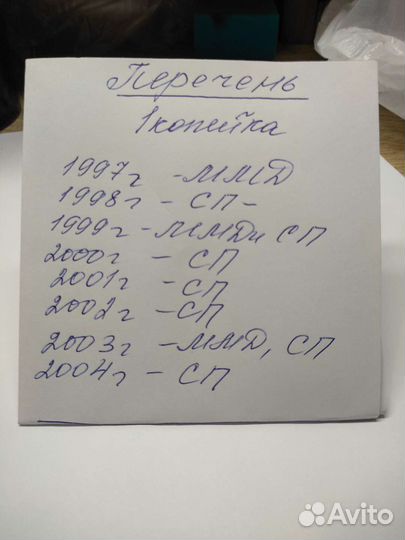 Перечень
1 копейка
1997г - ММД
1998г - СП -
1999г - ММД и СП
2000г - СП
2001г - СП
2002г - СП
2003г - ММД, СП
2004г - СП
Avito